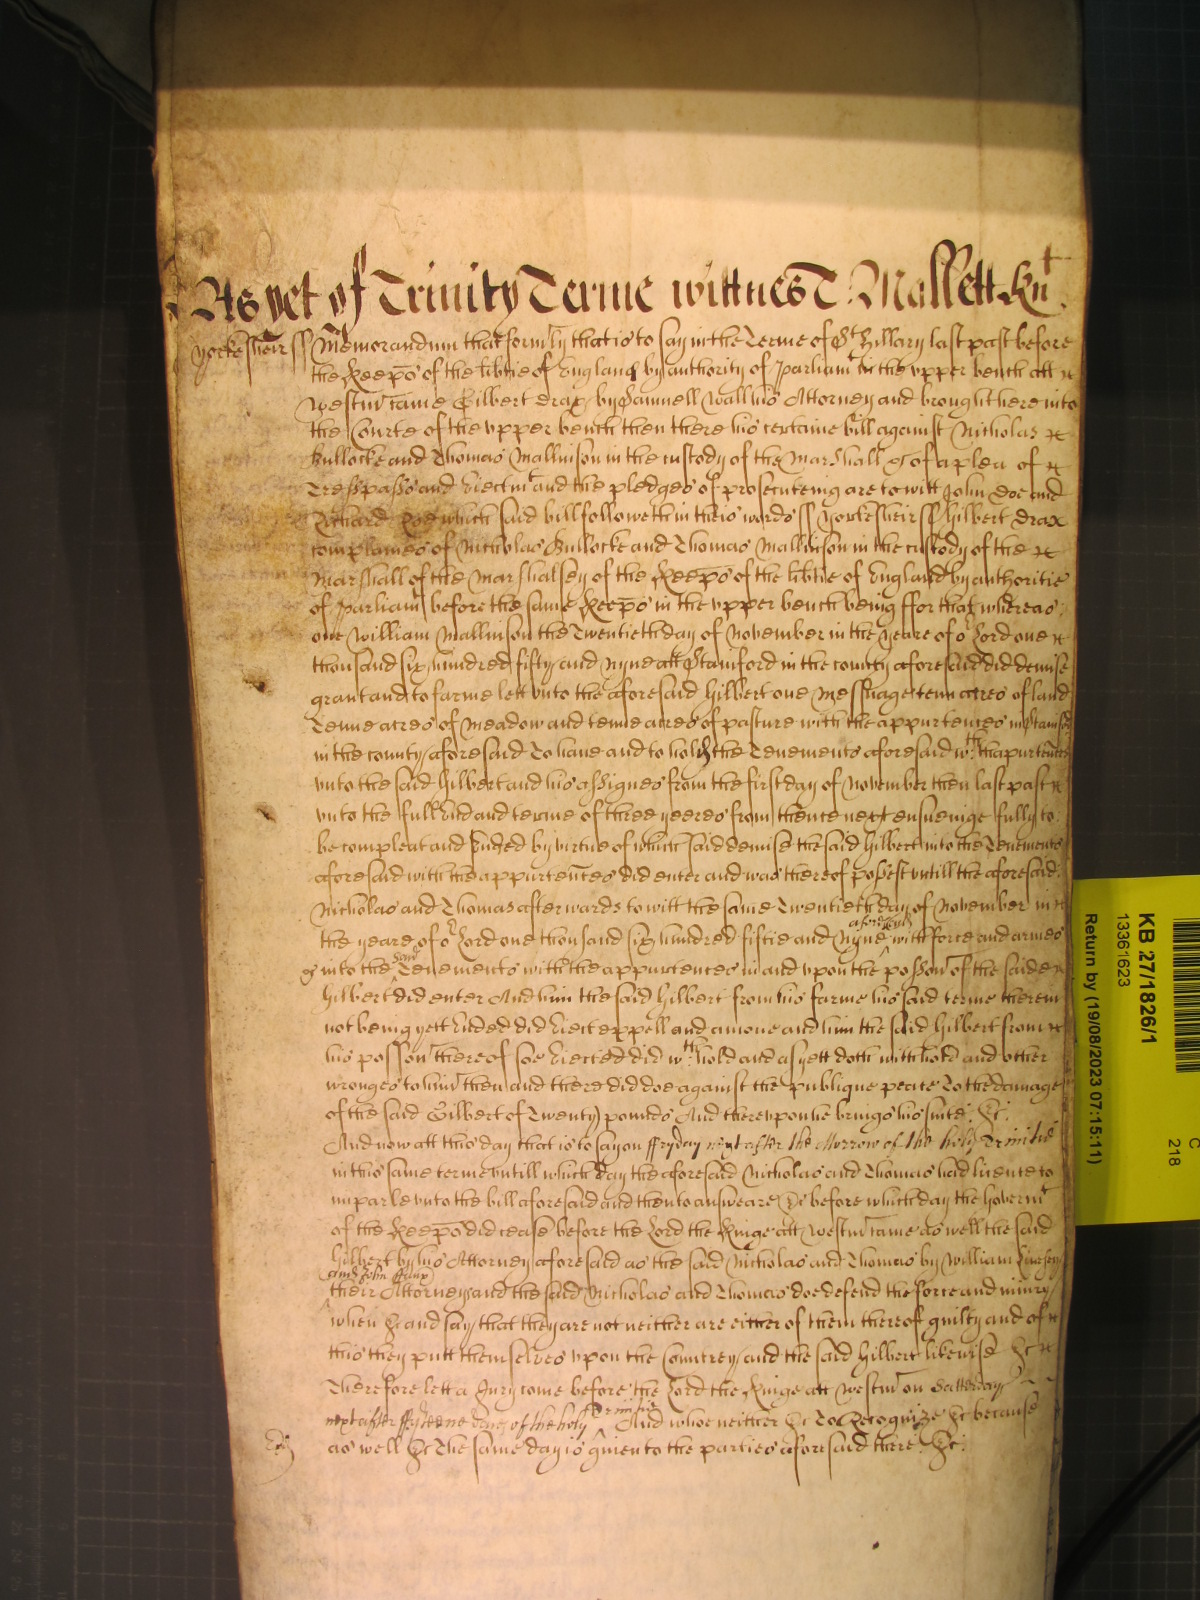 As yet of Trinity Terme wittnes T Mallett Knt
Yorkesheir ss Memorandum that formly that is to say in the Terme of St Hillary last past before
the Keeps of the libtie of England by authority of Parliamt in the vpper bench att
Westmr came Gilbert Drax by Samuell Wall his Attorney and brought here into
the Courte of the vpper bench then there his certaine bill against Nicholas
Bullocke and Thomas Mallinson in the custody of the Marshall &c of a plea of
Tresspasse and Eiectmt and the pledges of prosecuteing are to witt John Doe and
Richard Roe which said bill followeth in theis words ss Yorkesheir ss Gilbert Drax
complaines of Nicholas Bullocke and Thomas Mallinson in the custody of the
Marshall of the Marshalsey of the Keeps of the libtie of England by authoritie
of Parliamt before the same Keeps in the vpper bench being ffor that whereas
one William Mallinson the Twentieth day of November in the yeare of or Lord one
thousand six hundred fifty and nyne att Stainford in the county aforesaid did demise
grant and to farme lett vnto the aforesaid Gilbert one Messuage tenn acres of land
Tenne acres of meadow and tenne acres of pasture with the appurtences in Stainford
in the county aforesaid To haue and to hold the Tenements aforesaid wth thapurtences
vnto the said Gilbert and his assignes from the first day of November then last past
vnto the full End and terme of three yeeres from thence next ensueinge fully to
be compleat and Ended by virtue of which said demise the said Gilbert into the Tenements
aforesaid with the appurtences did enter and was thereof possest vntill the aforesaid
Nicholas and Thomas afterwards to witt the same Twentieth day of November in
the yeare of or Lord one thousand six hundred fiftie and nyne aforesaid with force and armes
&c into the said Tenements with the appurtences in and vpon the posson of the saide
Gilbert did enter And him the said Gilbert from his farme his said terme therein
not being yett Ended did Eiect expell and amoue and him the said Gilbert from
his posson thereof soe Eiected did wth hold and as yett doth withhold and other
wronges to him then and there did doe against the publique peace To the damage
of the said Gilbert of Twenty pounds And therevpon he brings his suite &c
And now att this day that is to say on ffryday next after the Morrow of the holy Trinitie
in this same terme vntill which day the aforesaid Nicholas and Thomas had licence to
imparle vnto the bill aforesaid and then to answeare &c before which day the Govermt
of the Keeps did cease before the Lord the Kinge att Westmr came as well the said
Gilbert by his Attorney aforesaid as the said Nicholas and Thomas by William
and John
their Attorneys and the said Nicholas and Thomas doe defend the force and iniury
when &c and say that they are not neither are either of them thereof guilty and of
this they putt themselves vpon the Countrey and the said Gilbert likewise &c
Therefore lett a Jury come before the Lord the Kinge att Westmr on Satterday
next after ffifteene dayes of the holy Trinitie And whoe neither &c To Recognize &c because
as well &c The same day is given to the parties aforesaid there &c
C
218
KB 27/1826/1
13361623
Return by (19/08/2023 07:15:11)